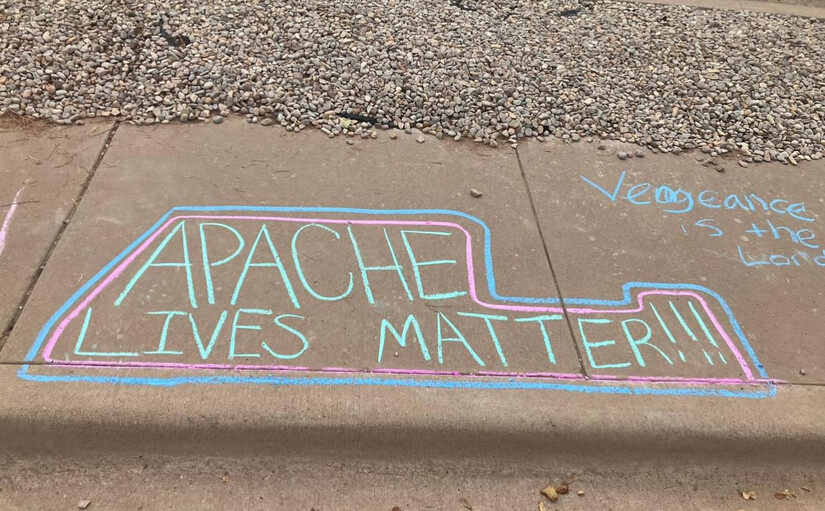 APACHE
LIVES MATTER!!!!
Vengeance
is the
Lord